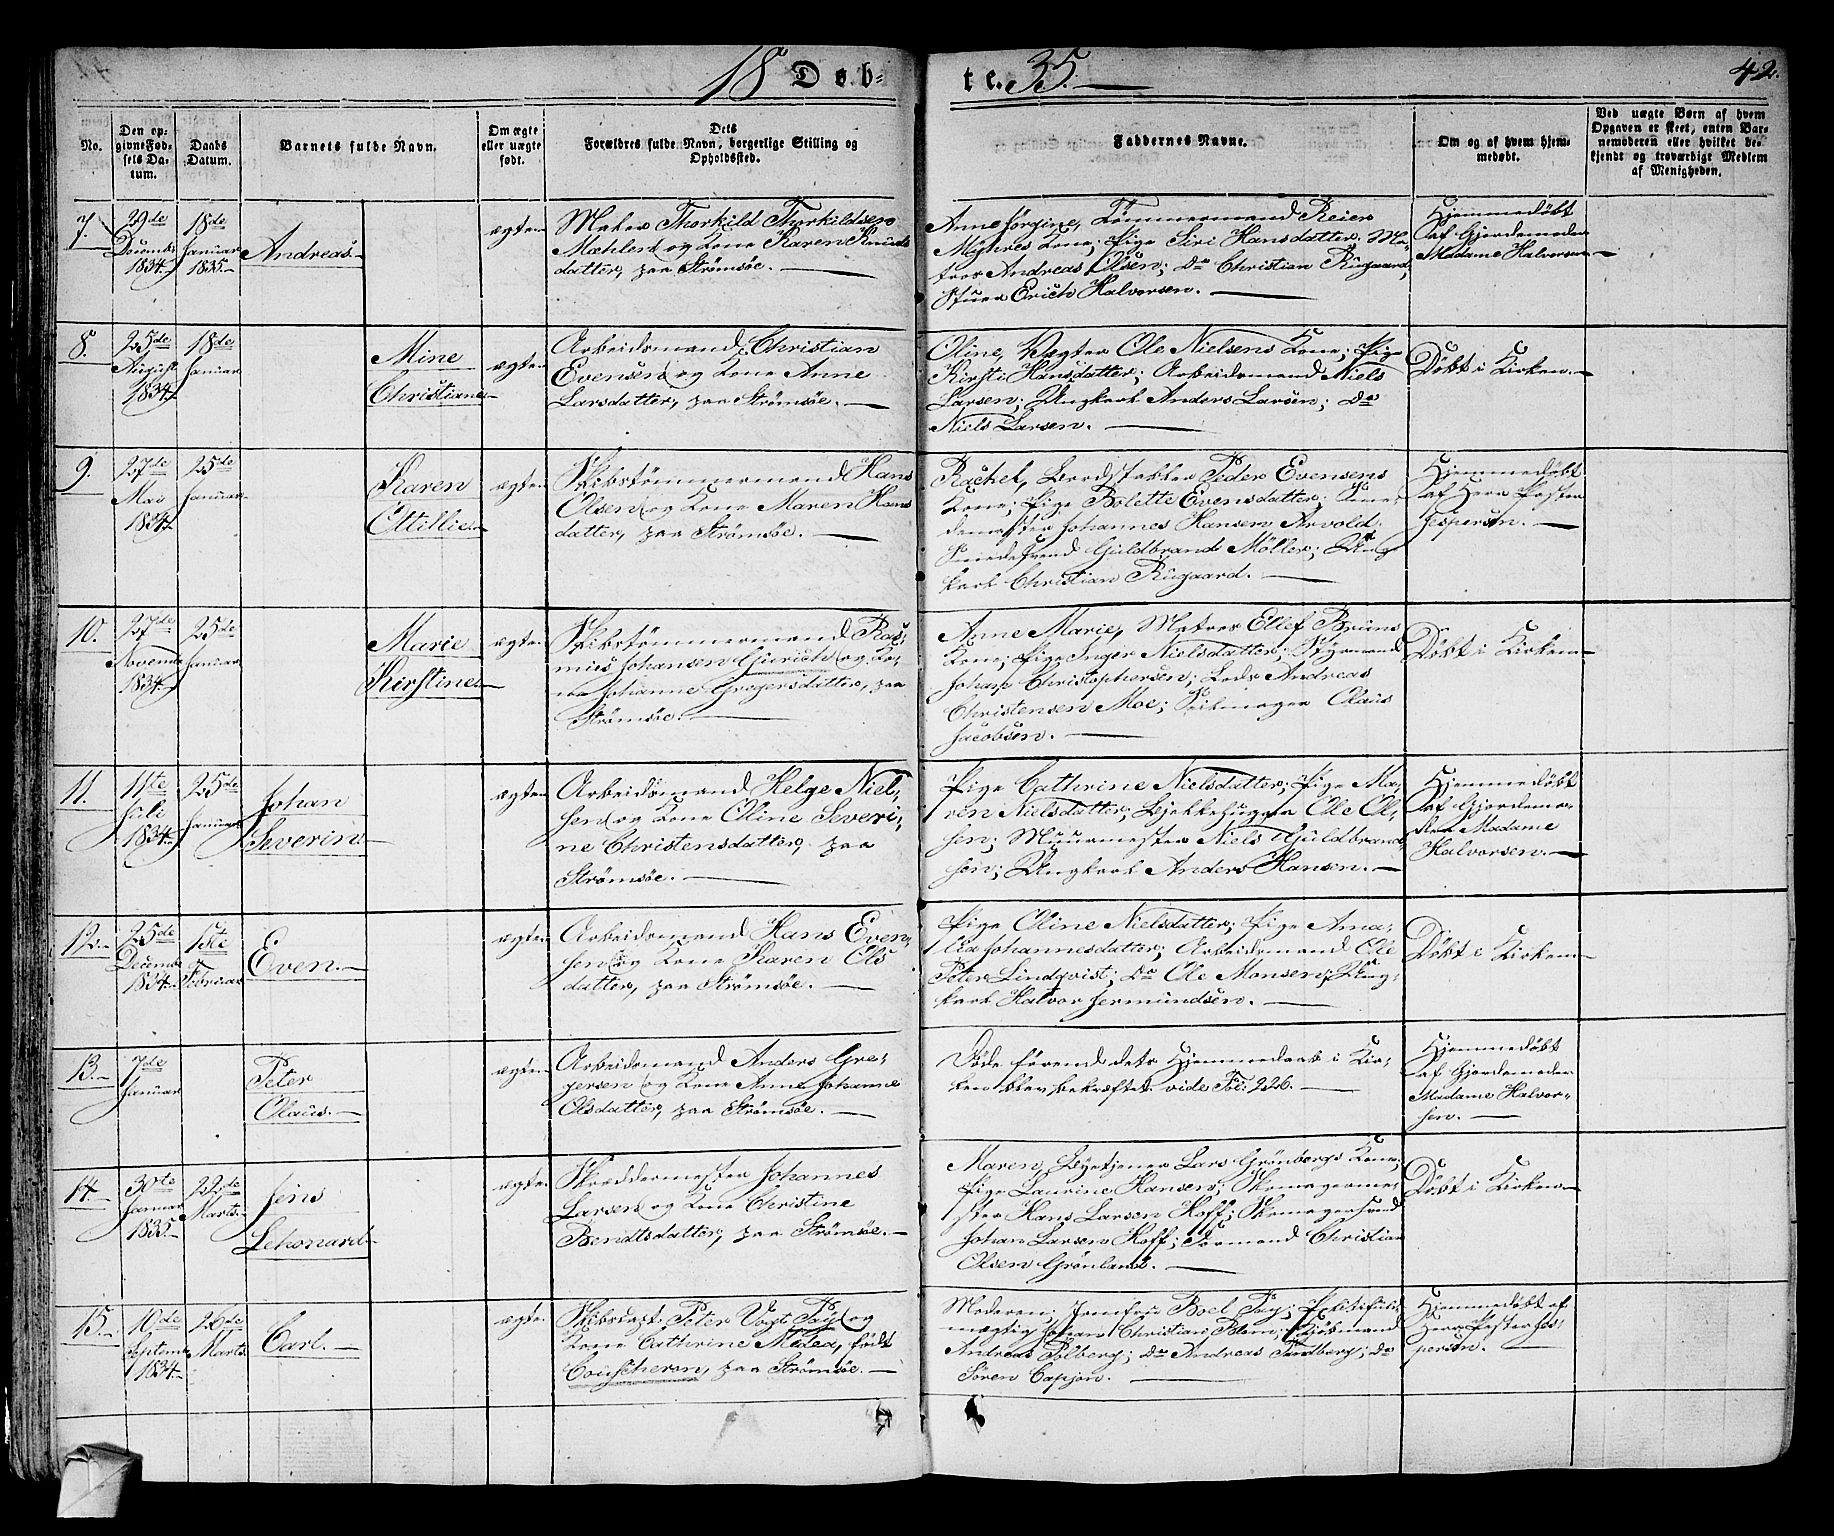 18 Døb-
te. 35.
42.
No.
Den op-
givne Fød-
sels Da-
tum.
Daabs
Datum.
Barnets fulde Navn.
Om ægte
eller uægte
født.
Dets
Forældres fulde Navn, borgerlige Stilling og
Opholdssted.
Faddernes Navne.
Om og af hvem hjem-
medøbt.
Ved uægte Børn af hvem
Opgaven er skeet, enten Bar-
nemoderen eller hvilket be-
kjendt og troværdigt Medlem
af Menigheden.
7.
29de
Decembr
1834.
18de
Januar
1835.
Andreas.
ægte
Thorkild Thorkildsen
Mæhlen og Kone Karen Knuds
datter, paa Strømsøe.
Anne Jørgine, Tømmermand Reier
Myhres Kone; Pige Siri Hansdatter; Ma-
tros Andreas Olsen; do Christian Rugaard,
Stuer Erich Halvorsen.
Hjemmedøbt
af Gjordemoder
Madame Halvorsen.
8.
25de
August
1834.
18de
Januar
Mine
Christiane.
ægte
Arbeidsmand Christian
Evensen og Kone Anne
Larsdatter, paa Strømsøe.
Oline, Vægter Ole Nielsens Kone; Pige
Kirsti Hansdatter; Arbeidsmand Niels
Larsen; Ungkarl Anders Larsen; do
Niels Larsen.
Døbt i Kirken.
9.
27de
Mai
1834.
25de
Januar
Karen
Ottillie.
ægte
Skibstømmermand Hans
Olsen og Kone Maren Hans
datter, paa Strømsøe.
Rachel, Bordstabler Peder Evensens
Kone; Pige Bolette Evensdatter;
Johannes Hansen Arvold;
Smedesvend Guldbrand Møller; Ung
karl Christian Rugaard.
Hjemmedøbt
af Herr Pastor
Jespersen.
10.
27de
Novembr
1834.
25de
Januar
Marie
Kirstine.
ægte
Skibstømmermand Ras-
mus Johansen Gjurich og Ko-
ne Johanne Gregersdatter, paa
Strømsøe.
Anne Marie, Matros Ellef Bruns
Kone; Pige Inger Nielsdatter; Styrmand
Johan Christophersen; Lods Andreas
Christensen Moe; Seilmager Olaus
Jacobsen.
Døbt i Kirken
11.
11te
Juli
1834.
25de
Januar
Johan
Severin.
ægte
Arbeidsmand Helge Niel-
sen og Kone Oline Severi-
ne Christensdatter, paa
Strømsøe.
Pige Cathrine Nielsdatter; Pige Ma-
ren Nielsdatter; Bjelkehugger Ole Ol-
sen; Muurmester Niels Guldbrand-
sen; Ungkarl Anders Hansen.
Hjemmedøbt
af Gjordemo-
der Madame
Halvorsen.
12.
25de
Decembr
1834.
1ste
Februar
Even.
ægte
Arbeidsmand Hans Even-
sen og Kone Karen Ols
datter, paa Strømsøe.
Pige Oline Nielsdatter; Pige Ama-
lia Johannesdatter; Arbeidsmand Ole
Peter Lindqvist; do Ole Monsen; Ung-
karl Halvor Jermundsen.
Døbt i Kirken
13.
7de
Januar
Peter
Olaus.
ægte
Arbeidsmand Anders Gre-
gersen og Kone Anne Johanne
Olsdatter, paa Strømsøe.
Døde førend dets Hjemmedaab i Kir-
ken blev bekræftet vide Fol: 226.
Hjemmedøbt
af Gjordemoder
Madame Halvor-
sen.
14.
30te
Januar
1835
22de
Marts
Jens
Lehonard.
ægte
Skræddermester Johannes
Larsen og Kone Christine
Bendtsdatter, paa Strømsøe.
Maren, Byetjener Lars Grønbergs Kone;
Pige Laurine Hansen; Skomagerme-
ster Hans Larsen Hoff; Skomagersvend
Johan Larsen Hoff; Formand Christian
Olsen Grønland.
Døbt i Kirken
15.
10de
Septembr
1834.
26de
Marts
Carl.
ægte
Peter Vogt Fay og
Kone Cathrine Medea, født
Couscheron, paa Strømsøe.
Moderen; Jomfru Boel Fay;
mægtig Johan Christian Blom; Kjøbmand
Andreas Tolberg; do Andreas Sundberg; do
Søren Capjon.
Hjemmedøbt af
Herr Pastor Jes-
persen.